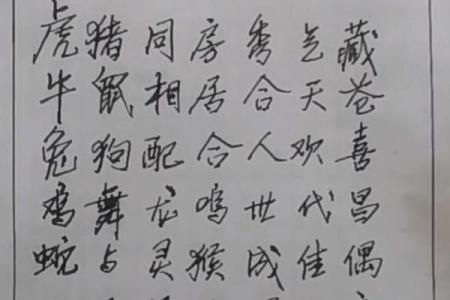 虎猪同房秀气藏
牛鼠相居合天苍
兔狗配合人欢喜
鸡舞龙鸣世代昌
蛇与灵猴成佳偶